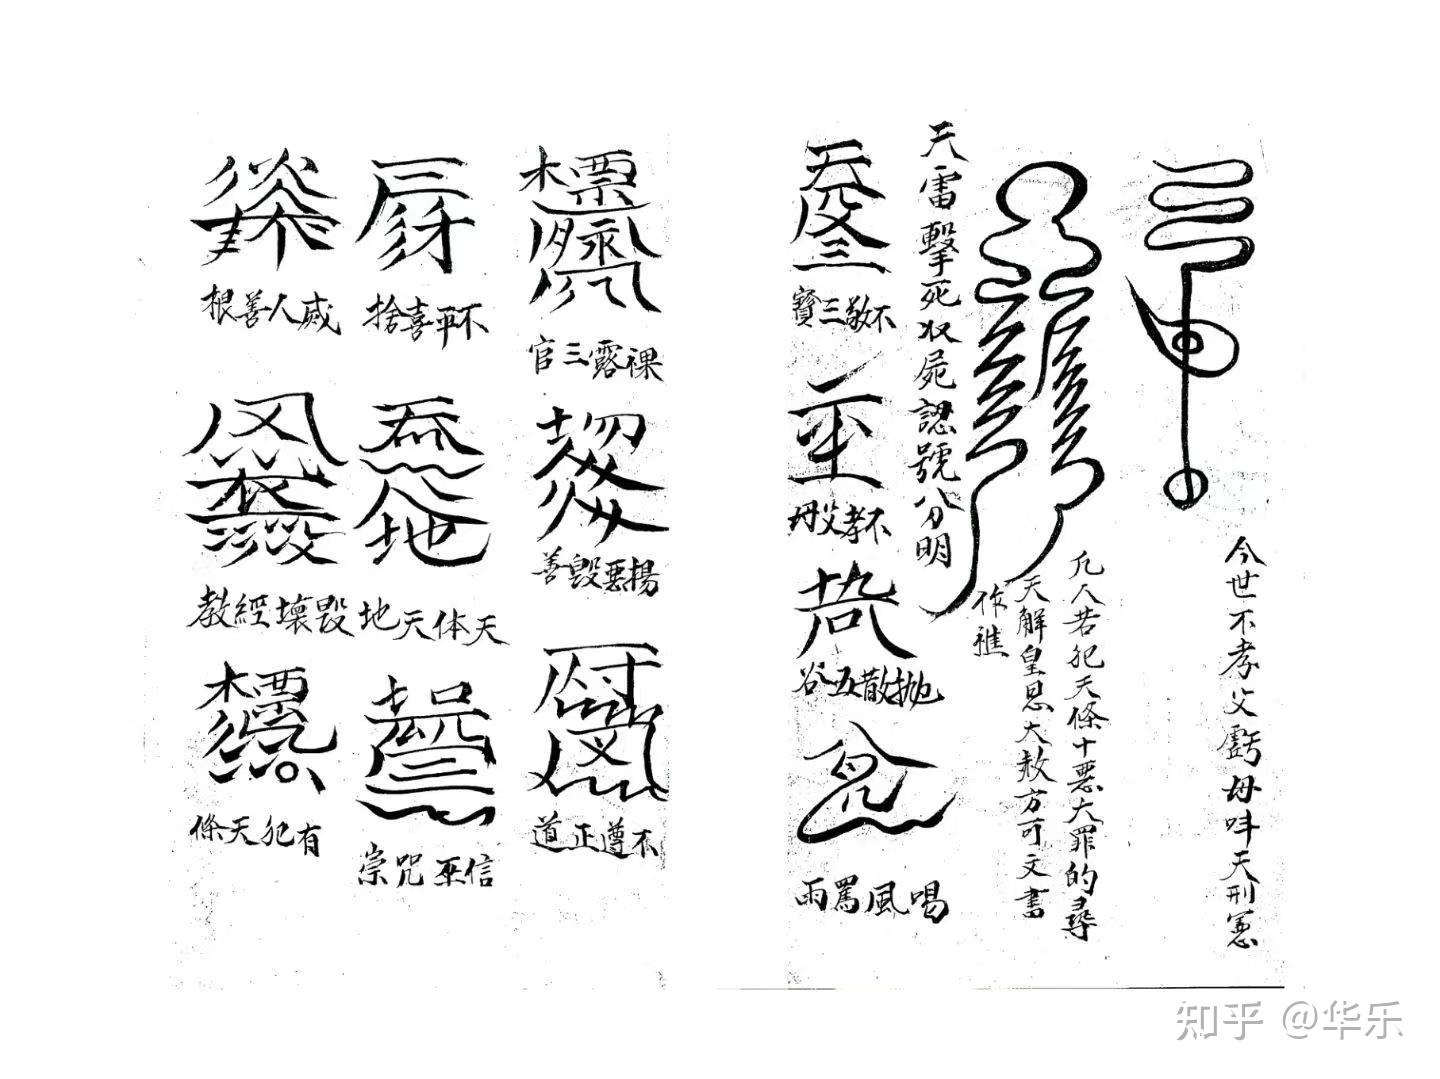 今世不孝父虧母呌天刑憲
凡人若犯天條十惡大罪的尋
天解皇恩大赦方可文書
作
天雷擊死収屍認號分明
不敬三寶
不孝父母
拋散五谷
喝風罵雨
裸露三官
揚惡毀善
不遵正道
不平喜捨
天体天地
信巫咒崇
人善根
毀壞經教
有犯天條
知乎 @华乐